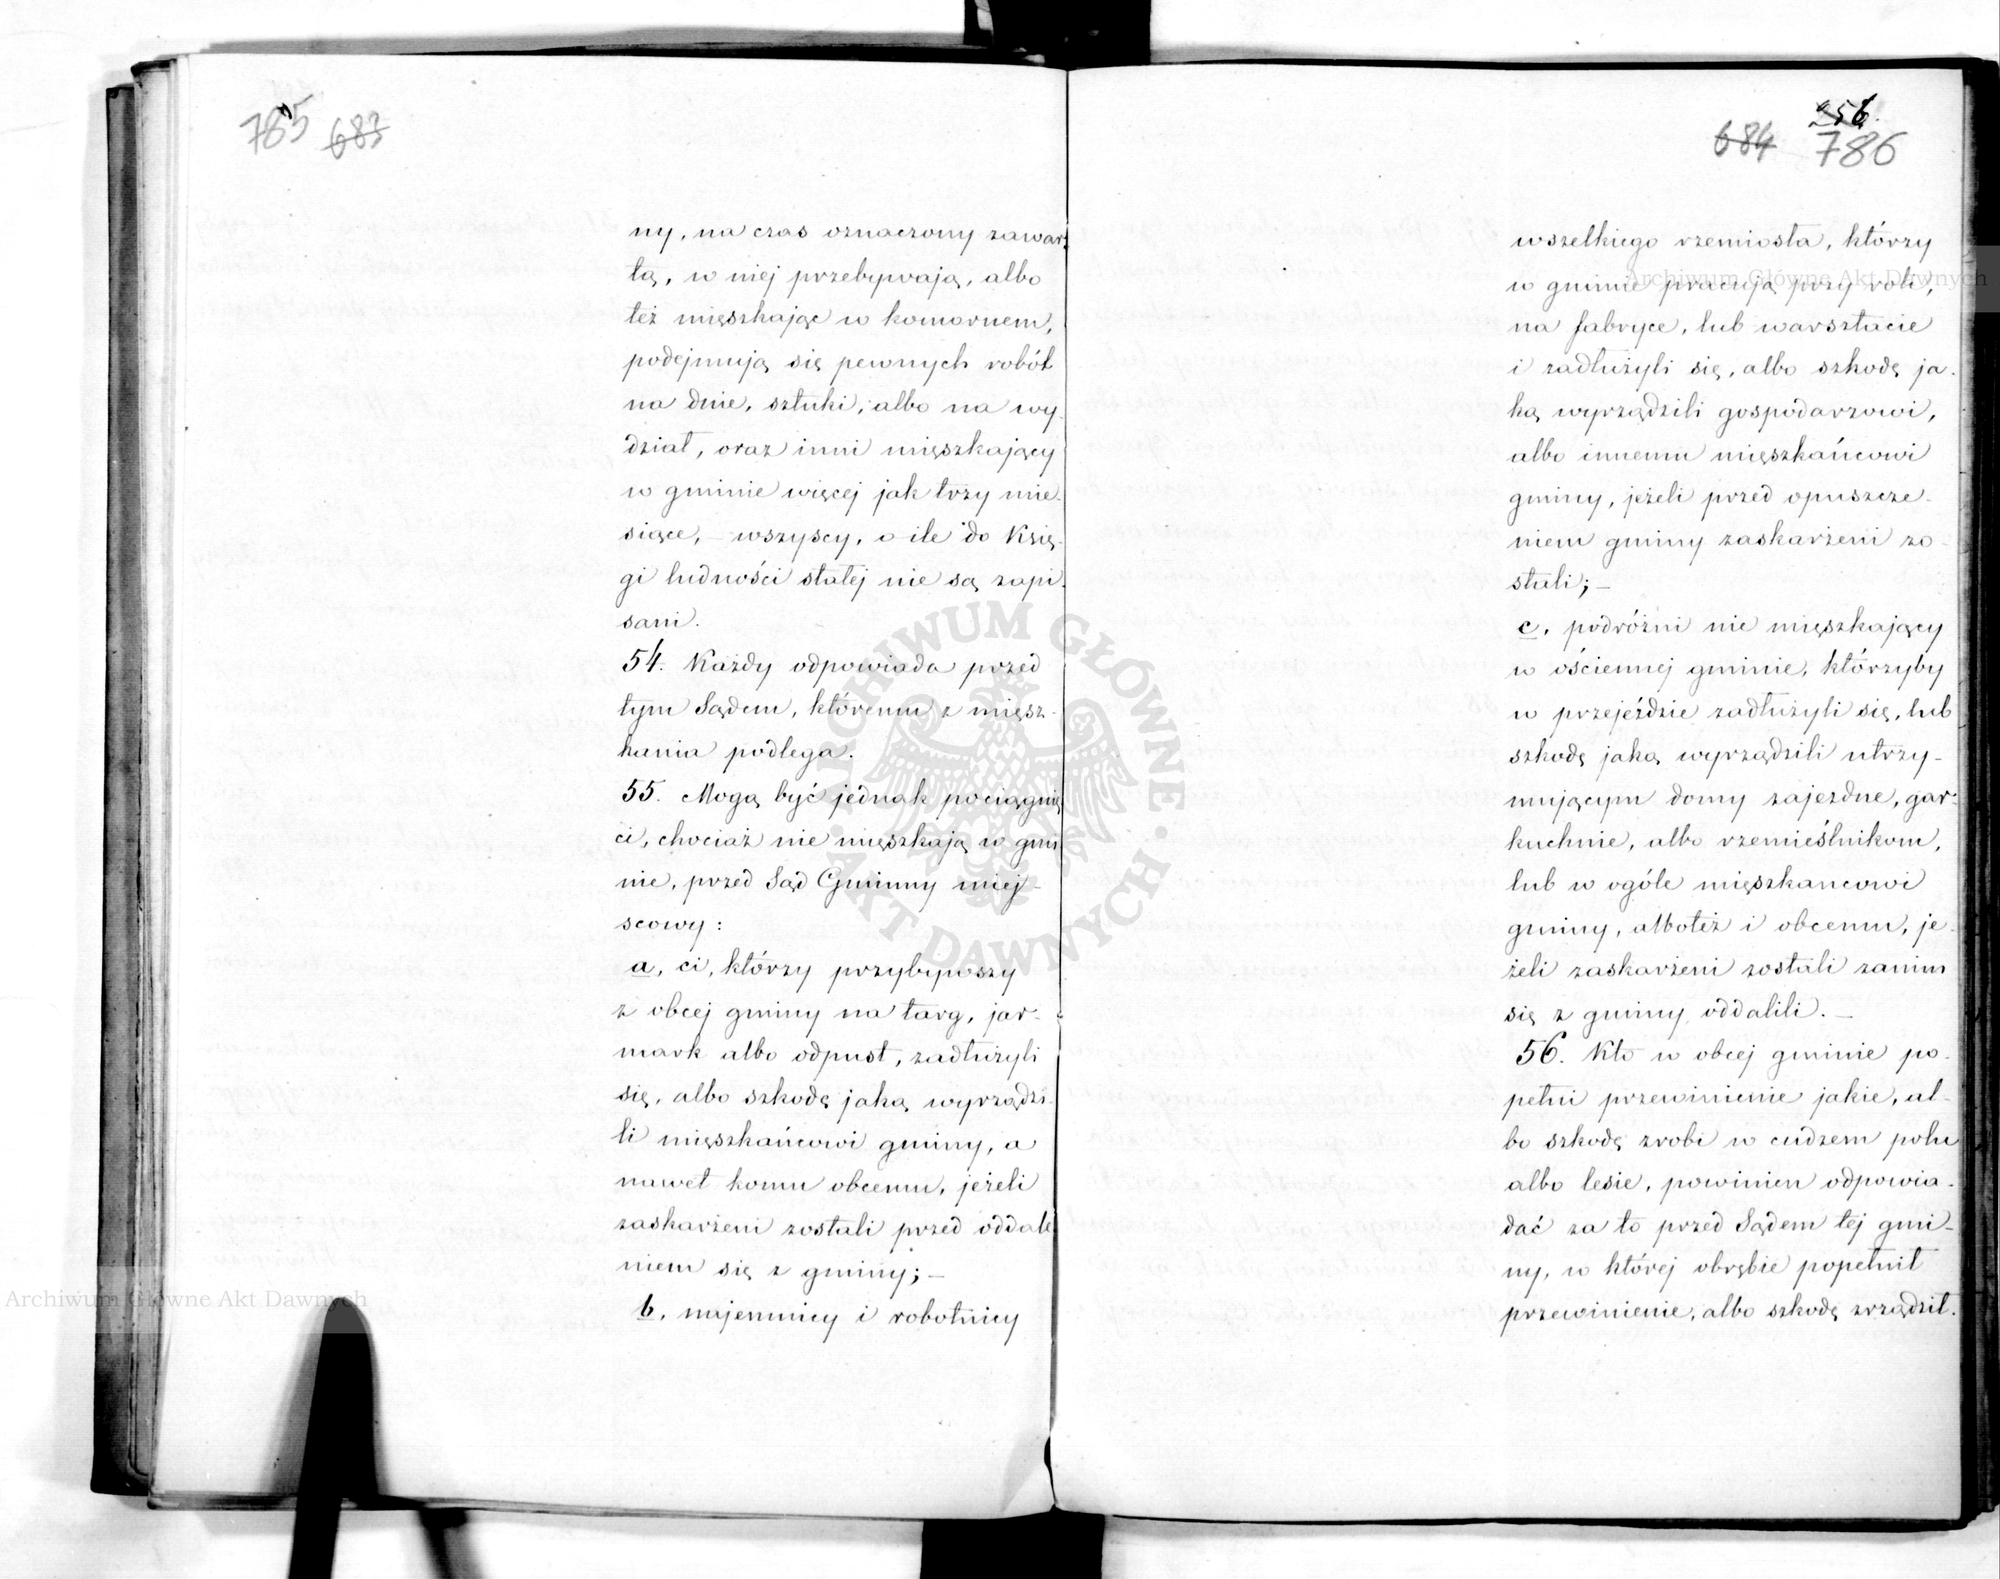 785 683
ny, na czas oznaczony zawar-
tą, w niej przebywają, albo
też mięszkając w komornem,
podejmują się pewnych robót
na dnie, sztuki, albo na wy-
dział, oraz inni mięszkający
w gminie więcej jak trzy mie-
siące, – wszyscy, o ile do Księ-
gi ludności stałej nie są zapi-
sani.
54. Każdy odpowiada przed
tym Sądem, któremu z mięsz-
kania podlega.
55. Mogą być jednak pociągnię
ci, chociaż nie mięszkają w gmi
nie, przed Sąd Gminny miej-
scowy:
a, ci, którzy przybywszy
z obcej gminy na targ, jar-
mark albo odpust, zadłużyli
się, albo szkodę jaką wyrządzi-
li mięszkańcowi gminy, a
nawet komu obcemu, jeżeli
zaskarżeni zostali przed oddale
niem się z gminy; –
b, najemnicy i robotnicy
256.
684 786
wszelkiego rzemiosła, którzy
w gminie pracują przy roli,
na fabryce, lub warsztacie
i zadłużyli się, albo szkodę ja-
ką wyrządzili gospodarzowi,
albo innemu mięszkańcowi
gminy, jeżeli przed opuszcze-
niem gminy zaskarżeni zo-
stali; –
c, podróżni nie mięszkający
w ościennej gminie, którzyby
w przejeździe zadłużyli się, lub
szkodę jaką wyrządzili utrzy-
mującym domy zajezdne, gar-
kuchnie, albo rzemieślnikom,
lub w ogóle mięszkancowi
gminy, albotéż i obcemu, je-
żeli zaskarżeni zostali zanim
się z gminy oddalili. –
56. Kto w obcej gminie po-
pełni przewinienie jakie, al-
bo szkodę zrobi w cudzem polu
albo lesie, powinien odpowia-
dać za to przed Sądem tej gmi-
ny, w której obrębie popełnił
przewinienie, albo szkodę zrządził.
Archiwum Główne Akt Dawnych
Archiwum Główne Akt Dawnych
ARCHIWUM GŁÓWNE
AKT DAWNYCH